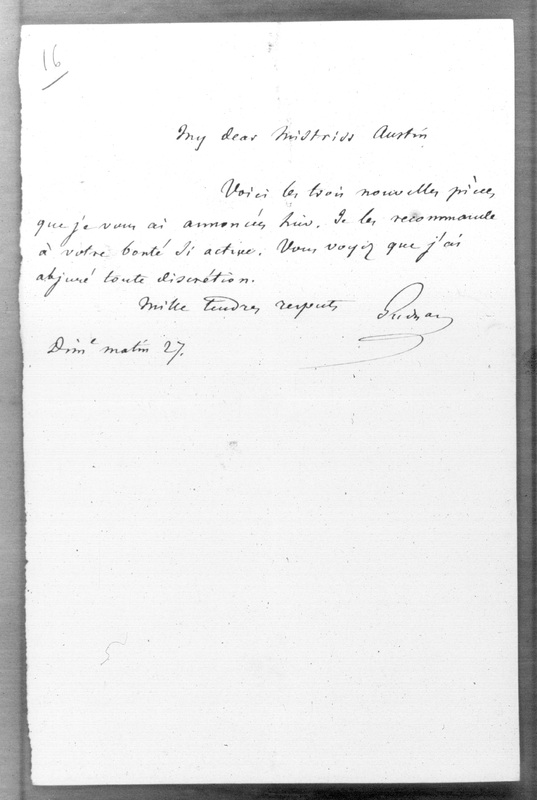 16
My dear Mistriss Austin
Voici les trois nouvelles pièces
que je vous ai annoncées hier. Je les recommande
à votre bonté si active. Vous voyez que j'ai
abjuré toute discrétion.
Mille tendres respects
Dim^e matin 27.